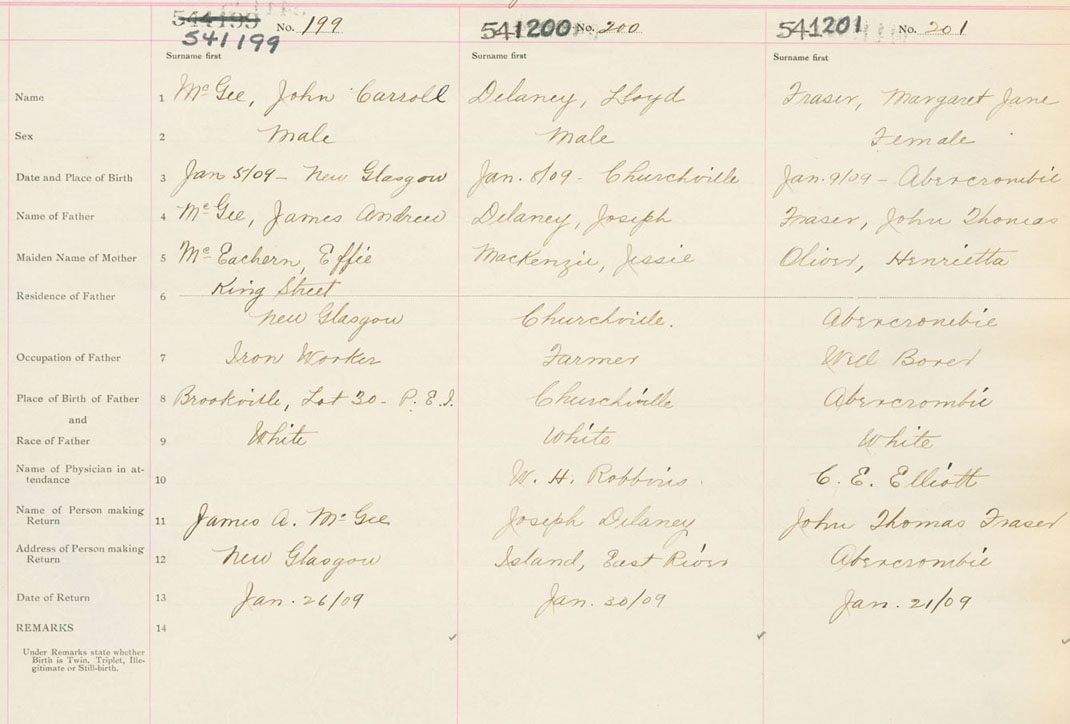 544199 No. 199 541200 No. 200 541201 No. 201
541199
Surname first Surname first Surname first
Name 1 McGee, John Carroll Delaney, Lloyd Fraser, Margaret Jane
Sex 2 Male Male Female
Date and Place of Birth 3 Jan 5/09 - New Glasgow Jan. 8/09 - Churchville Jan. 9/09 - Abercrombie
Name of Father 4 McGee, James Andrew Delaney, Joseph Fraser, John Thomas
Maiden Name of Mother 5 McEachern, Effie MacKenzie, Jessie Oliver, Henrietta
King Street
Residence of Father 6 New Glasgow Churchville. Abercrombie
Occupation of Father 7 Iron Worker Farmer Well Borer
Place of Birth of Father 8 Brookville, Lot 30 - P.E.I. Churchville Abercrombie
and
Race of Father 9 White White White
Name of Physician in at-
tendance 10 W. H. Robbins. C. E. Elliott
Name of Person making
Return 11 James A. McGee Joseph Delaney John Thomas Fraser
Address of Person making
Return 12 New Glasgow Island, East River Abercrombie
Date of Return 13 Jan. 26/09 Jan. 30/09 Jan. 21/09
REMARKS 14
Under Remarks state whether
Birth is Twin, Triplet, Ille-
gitimate or Still-birth.